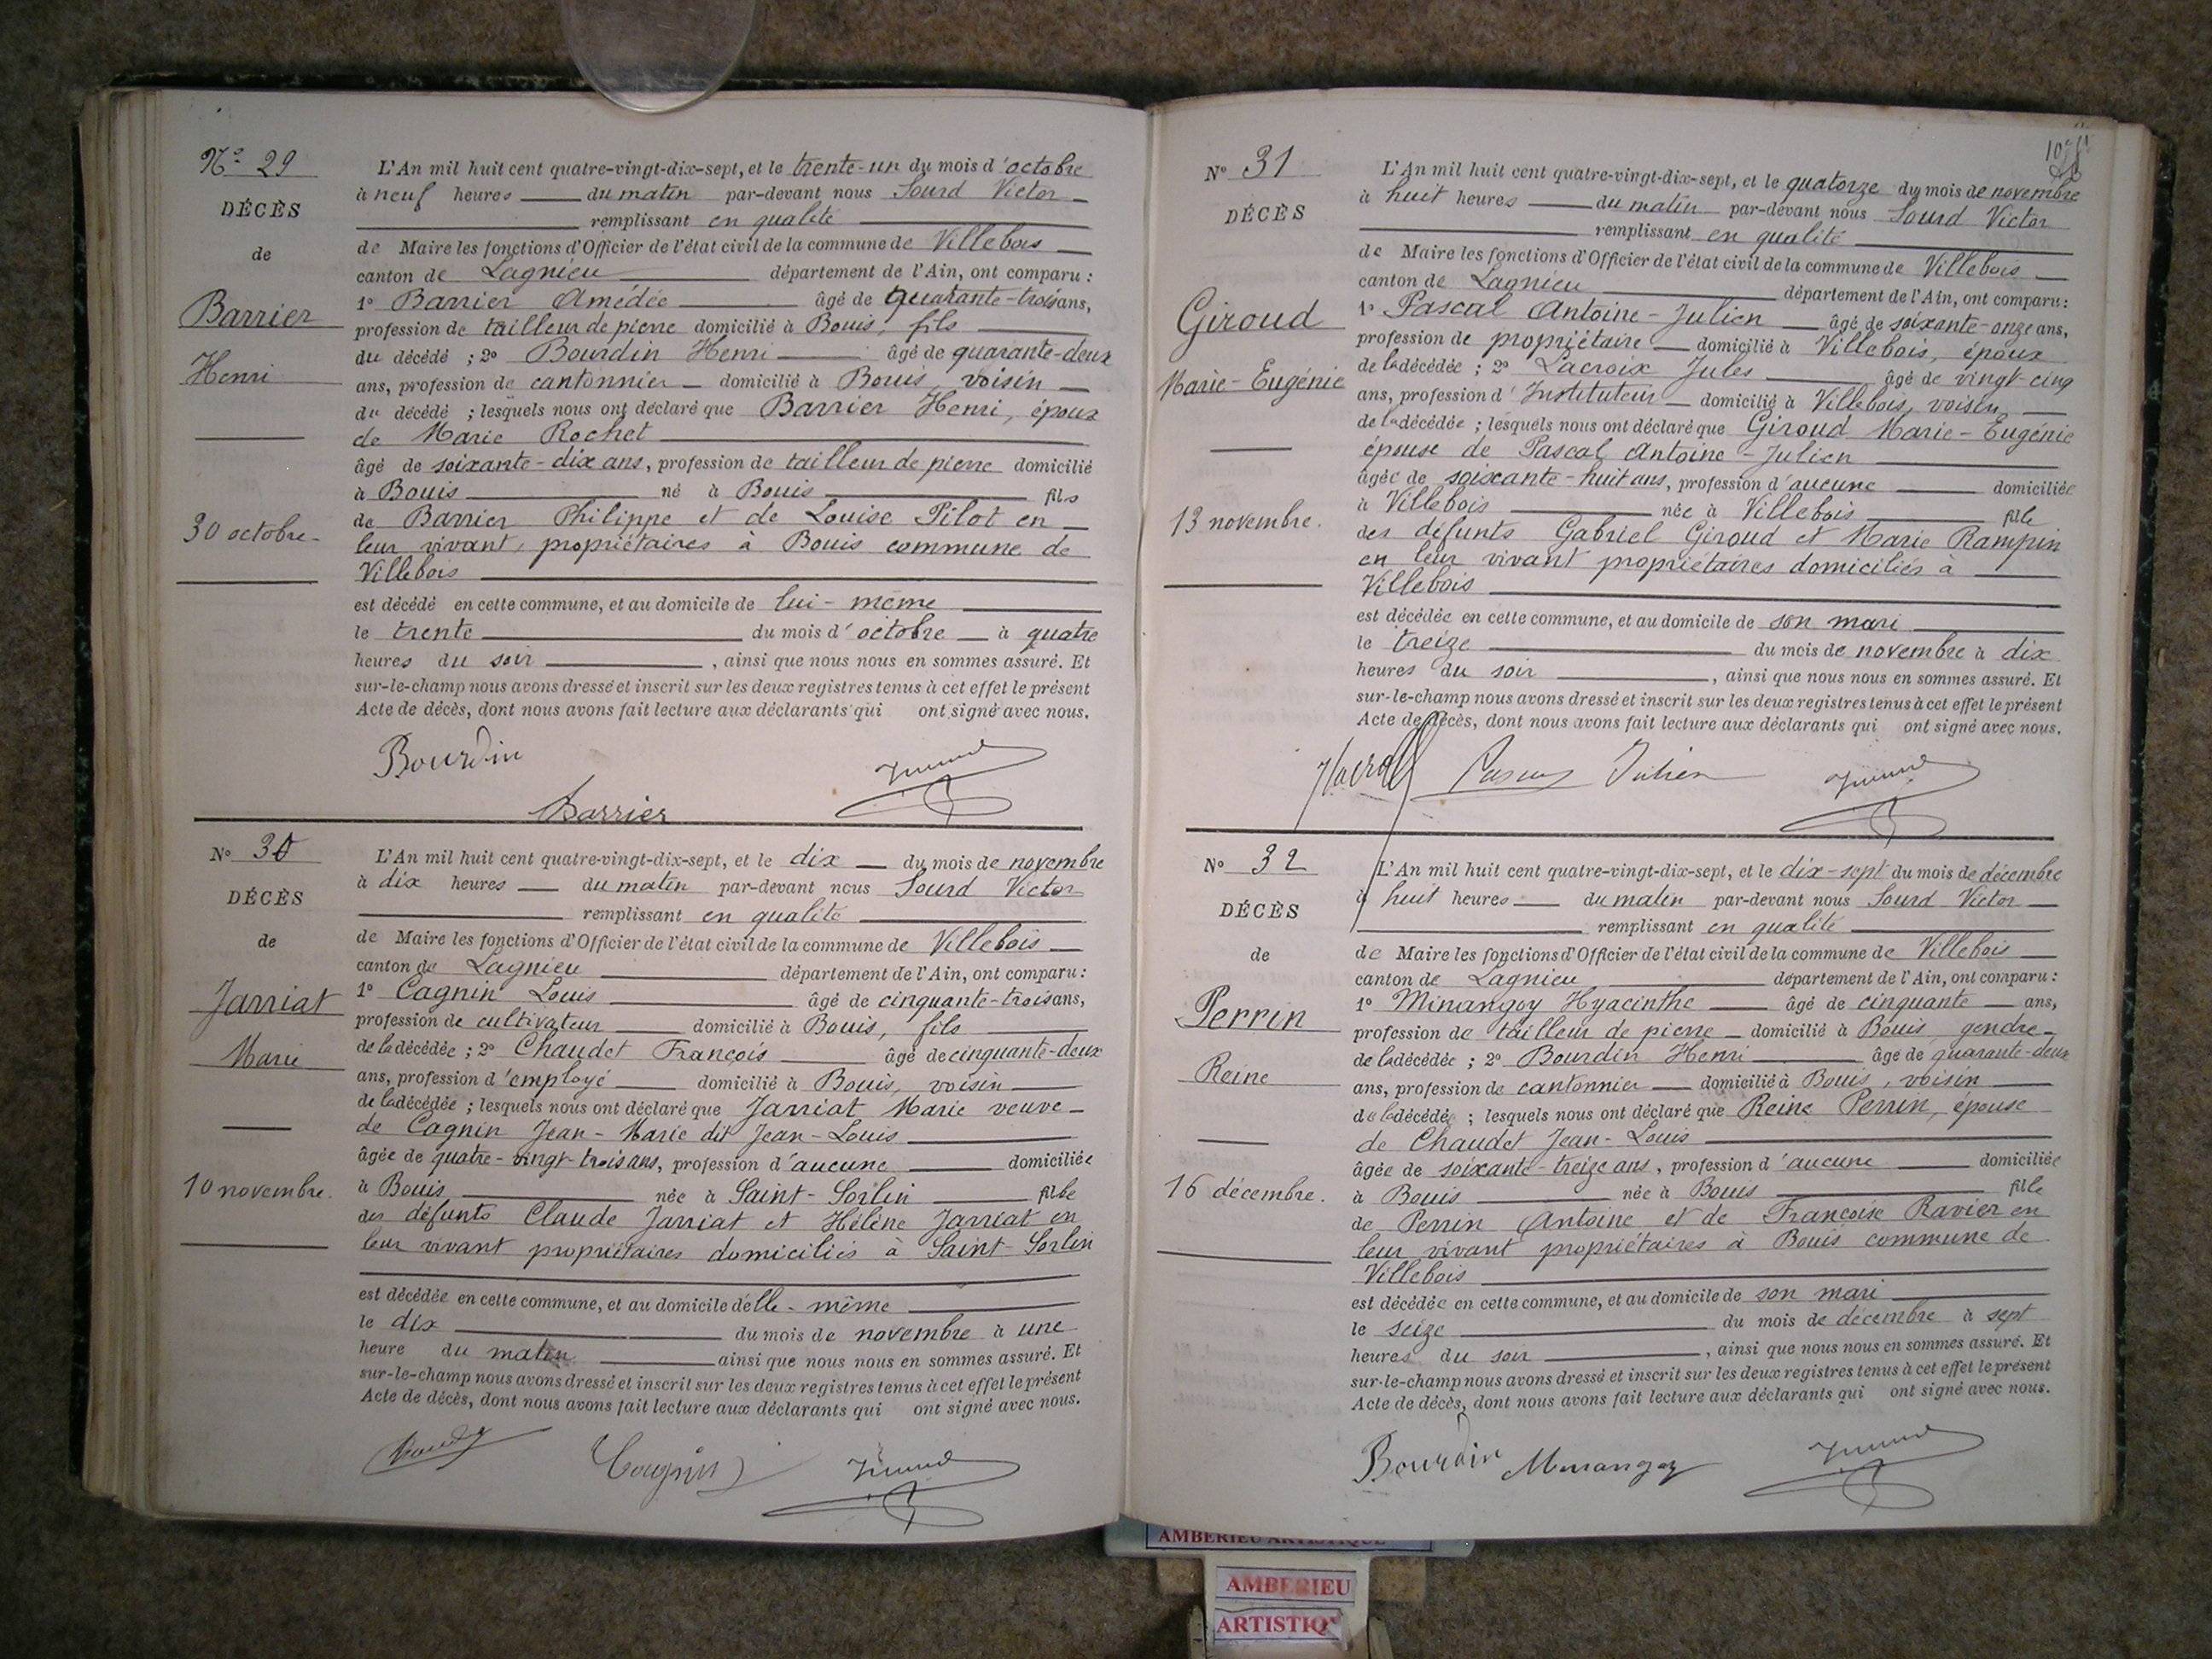 Nº 29
DÉCÈS
de
Barrier
Henri
30 octobre
L'An mil huit cent quatre-vingt-dix-sept, et le trente-un du mois d'octobre
à neuf heures du matin par-devant nous Sourd Victor
remplissant en qualité
de Maire les fonctions d'Officier de l'état civil de la commune de Villebois
canton de Lagnieu département de l'Ain, ont comparu :
1º Barrier Amédée âgé de quarante-trois ans,
profession de tailleur de pierre domicilié à Bouis, fils
du décédé ; 2º Bourdin Henri âgé de quarante-deux
ans, profession de cantonnier domicilié à Bouis, voisin
du décédé ; lesquels nous ont déclaré que Barrier Henri, époux
de Marie Rochet
âgé de soixante-dix ans, profession de tailleur de pierre domicilié
à Bouis né à Bouis fils
de Barrier Philippe et de Louise Pilot en
leur vivant, propriétaires à Bouis commune de
Villebois
est décédé en cette commune, et au domicile de lui-même
le trente du mois d'octobre à quatre
heures du soir , ainsi que nous nous en sommes assuré. Et
sur-le-champ nous avons dressé et inscrit sur les deux registres tenus à cet effet le présent
Acte de décès, dont nous avons fait lecture aux déclarants qui ont signé avec nous.
Bourdin
Barrier
Nº 30
DÉCÈS
de
Jarriat
Marie
10 novembre.
L'An mil huit cent quatre-vingt-dix-sept, et le dix du mois de novembre
à dix heures du matin par-devant nous Sourd Victor
remplissant en qualité
de Maire les fonctions d'Officier de l'état civil de la commune de Villebois
canton de Lagnieu département de l'Ain, ont comparu :
1º Cagnin Louis âgé de cinquante-trois ans,
profession de cultivateur domicilié à Bouis, fils
de la décédée ; 2º Chaudet François âgé de cinquante-deux
ans, profession d'employé domicilié à Bouis, voisin
de la décédée ; lesquels nous ont déclaré que Jarriat Marie veuve
de Cagnin Jean-Marie dit Jean-Louis
âgée de quatre-vingt-trois ans, profession d'aucune domiciliée
à Bouis née à Saint-Sorlin fille
des défunts Claude Jarriat et Hélène Jarriat en
leur vivant propriétaires domiciliés à Saint-Sorlin
est décédée en cette commune, et au domicile d'elle-même
le dix du mois de novembre à une
heure du matin ainsi que nous nous en sommes assuré. Et
sur-le-champ nous avons dressé et inscrit sur les deux registres tenus à cet effet le présent
Acte de décès, dont nous avons fait lecture aux déclarants qui ont signé avec nous.
Nº 31
DÉCÈS
Giroud
Marie-Eugénie
13 novembre.
L'An mil huit cent quatre-vingt-dix-sept, et le quatorze du mois de novembre
à huit heures du matin par-devant nous Sourd Victor
remplissant en qualité
de Maire les fonctions d'Officier de l'état civil de la commune de Villebois
canton de Lagnieu département de l'Ain, ont comparu :
1º Pascal Antoine-Julien âgé de soixante-onze ans,
profession de propriétaire domicilié à Villebois, époux
de la décédée ; 2º Lacroix Jules âgé de vingt-cinq
ans, profession d'Instituteur domicilié à Villebois, voisin
de la décédée ; lesquels nous ont déclaré que Giroud Marie-Eugénie
épouse de Pascal Antoine-Julien
âgée de soixante-huit ans, profession d'aucune domiciliée
à Villebois née à Villebois fille
des défunts Gabriel Giroud et Marie Rampin
en leur vivant propriétaires domiciliés à
Villebois
est décédée en cette commune, et au domicile de son mari
le treize du mois de novembre à dix
heures du soir , ainsi que nous nous en sommes assuré. Et
sur-le-champ nous avons dressé et inscrit sur les deux registres tenus à cet effet le présent
Acte de décès, dont nous avons fait lecture aux déclarants qui ont signé avec nous.
Julien
Nº 32
DÉCÈS
de
Perrin
Reine
16 décembre.
L'An mil huit cent quatre-vingt-dix-sept, et le dix-sept du mois de décembre
à huit heures du matin par-devant nous Sourd Victor
remplissant en qualité
de Maire les fonctions d'Officier de l'état civil de la commune de Villebois
canton de Lagnieu département de l'Ain, ont comparu :
1º Minangoy Hyacinthe âgé de cinquante ans,
profession de tailleur de pierre domicilié à Bouis gendre
de la décédée ; 2º Bourdin Henri âgé de quarante-deux
ans, profession de cantonnier domicilié à Bouis, voisin
de la décédée ; lesquels nous ont déclaré que Reine Perrin, épouse
de Chaudet Jean-Louis
âgée de soixante-treize ans, profession d'aucune domiciliée
à Bouis née à Bouis fille
de Perrin Antoine et de Françoise Ravier en
leur vivant propriétaires à Bouis commune de
Villebois
est décédée en cette commune, et au domicile de son mari
le seize du mois de décembre à sept
heures du soir , ainsi que nous nous en sommes assuré. Et
sur-le-champ nous avons dressé et inscrit sur les deux registres tenus à cet effet le présent
Acte de décès, dont nous avons fait lecture aux déclarants qui ont signé avec nous.
Bourdin Minangoy
AMBERIEU ARTISTIQUE
AMBERIEU
ARTISTIQ